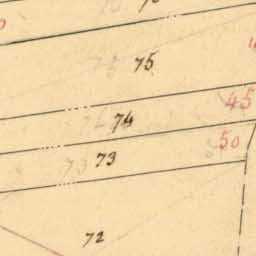 75
45
74
50
73
72